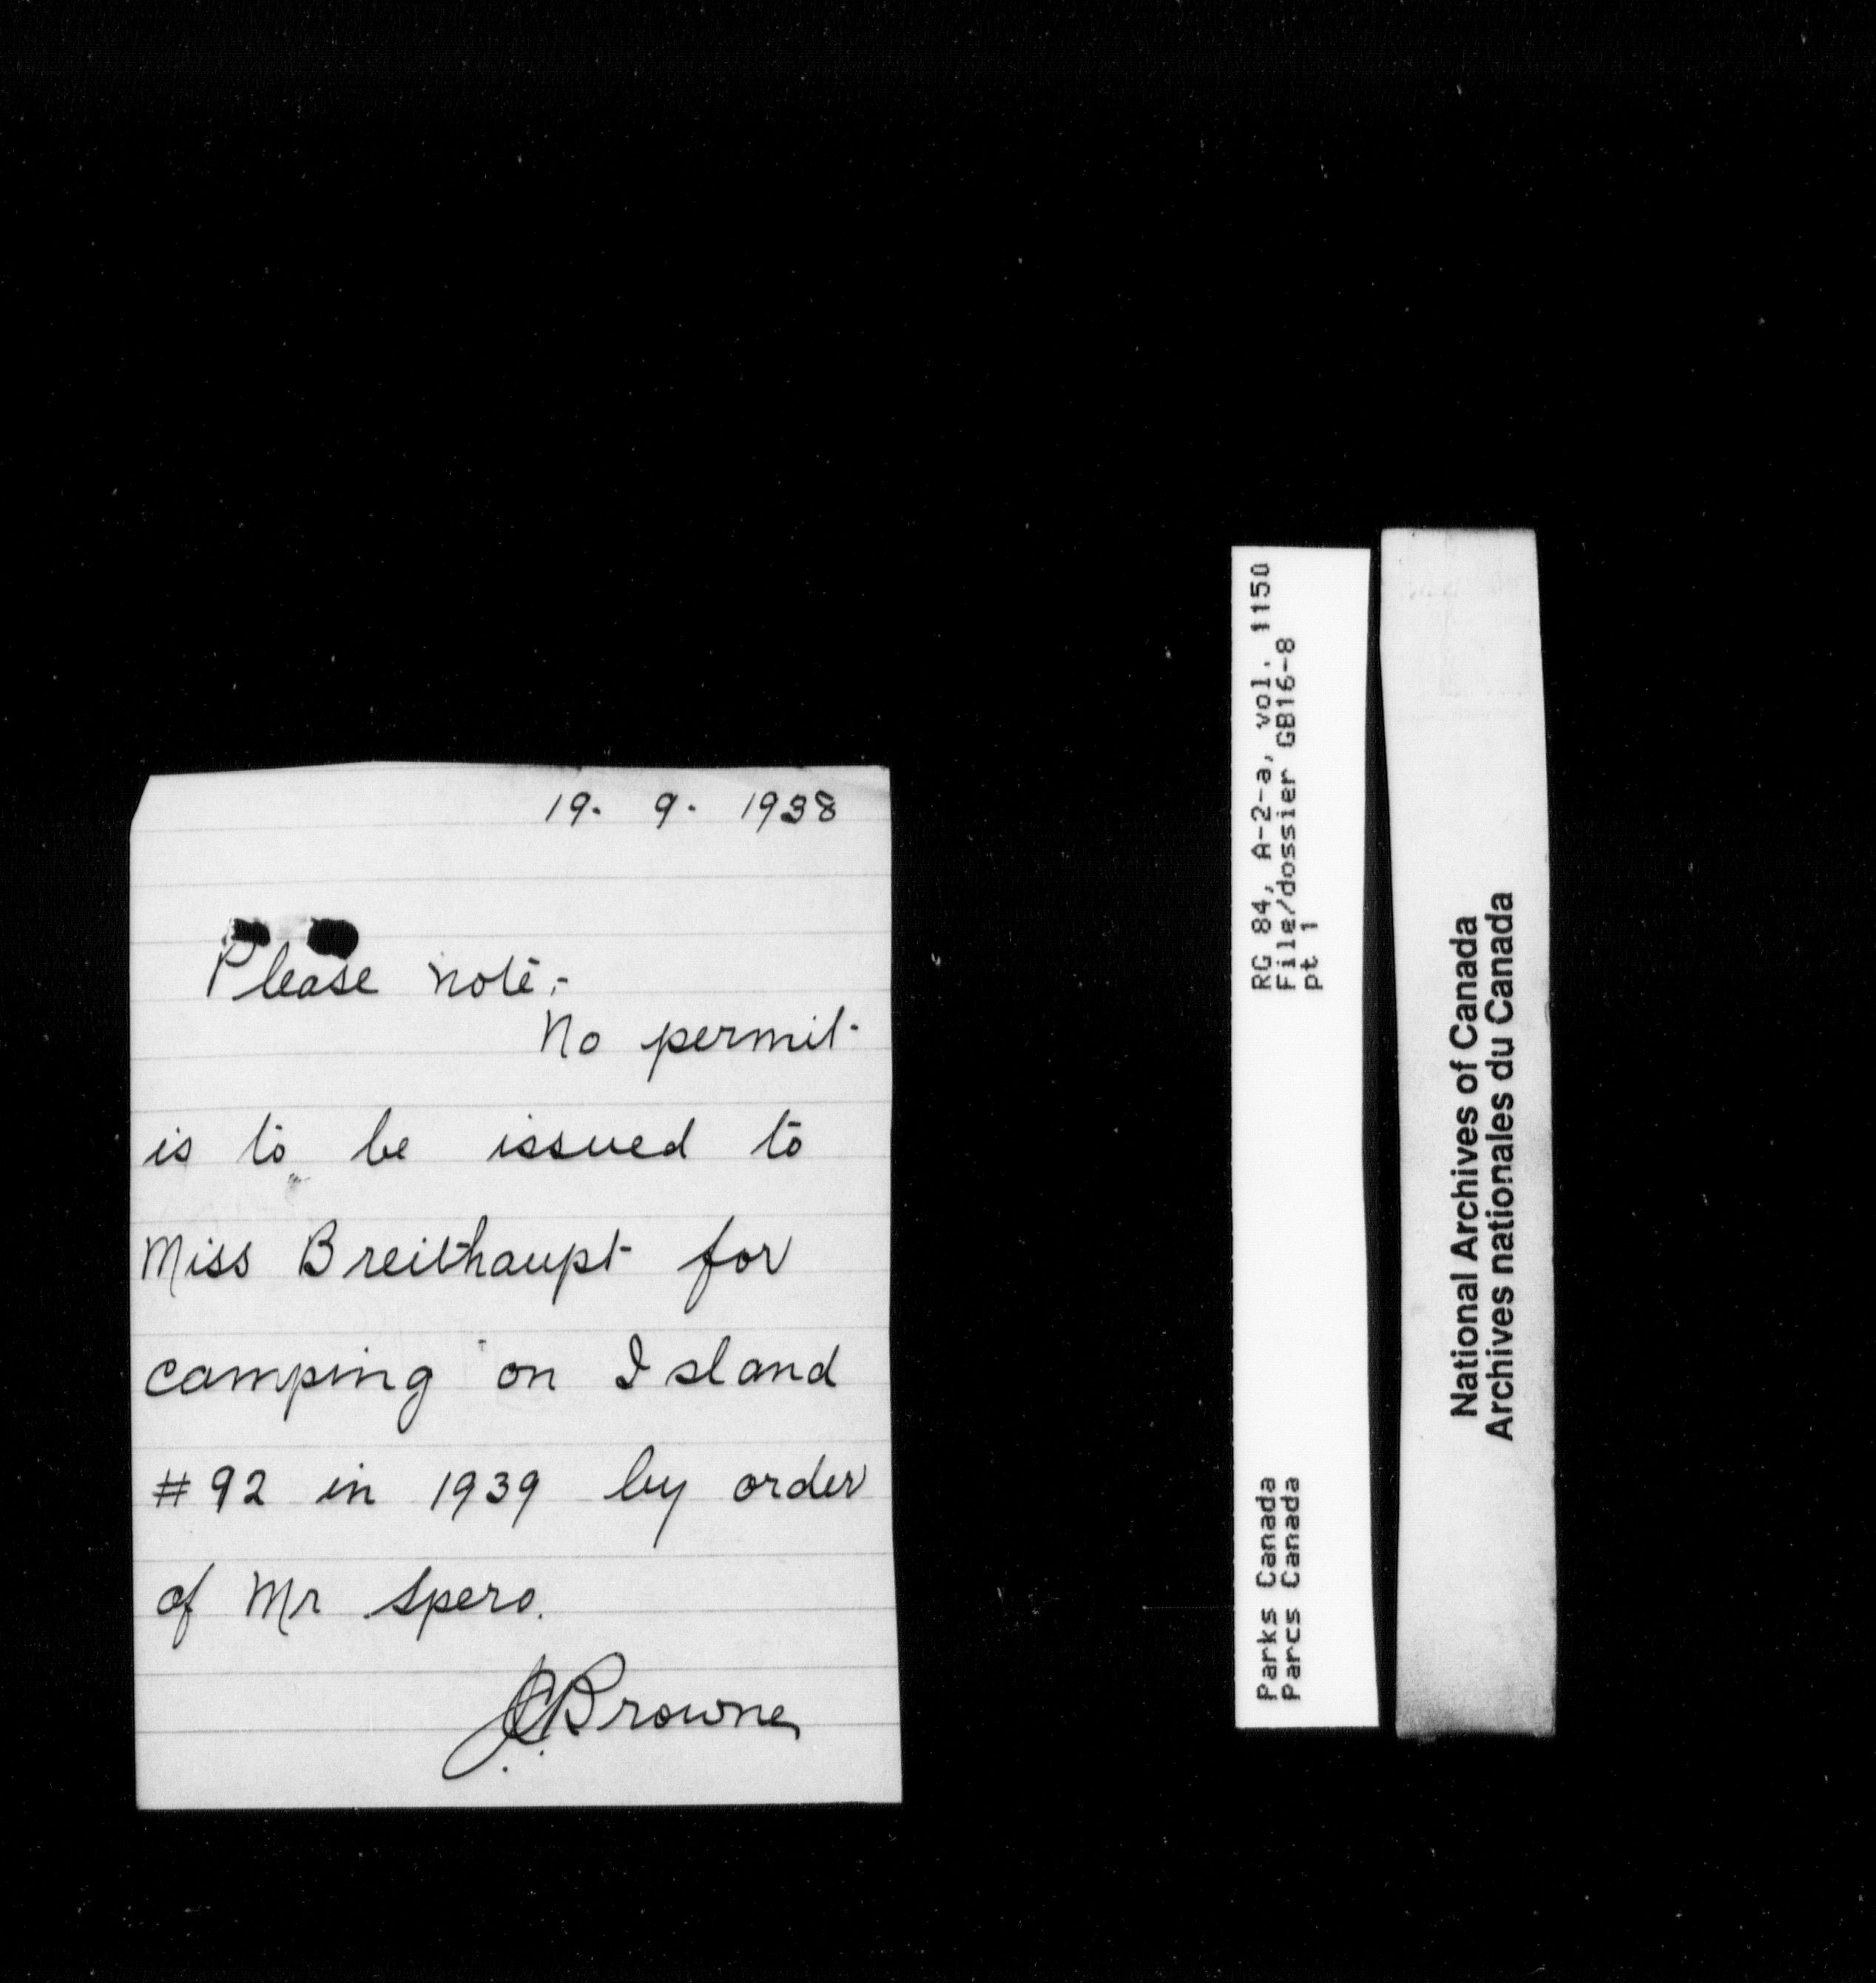 19. 9. 1938
Please note:-
No permit
is to be issued to
Miss Breithaupt for
camping on Island
#92 in 1939 by order
of Mr Spero.
J.C. Browne
RG 84, A-2-a, vol. 1150
File/dossier GB16-8
pt 1
Parks Canada
Parcs Canada
National Archives of Canada
Archives nationales du Canada